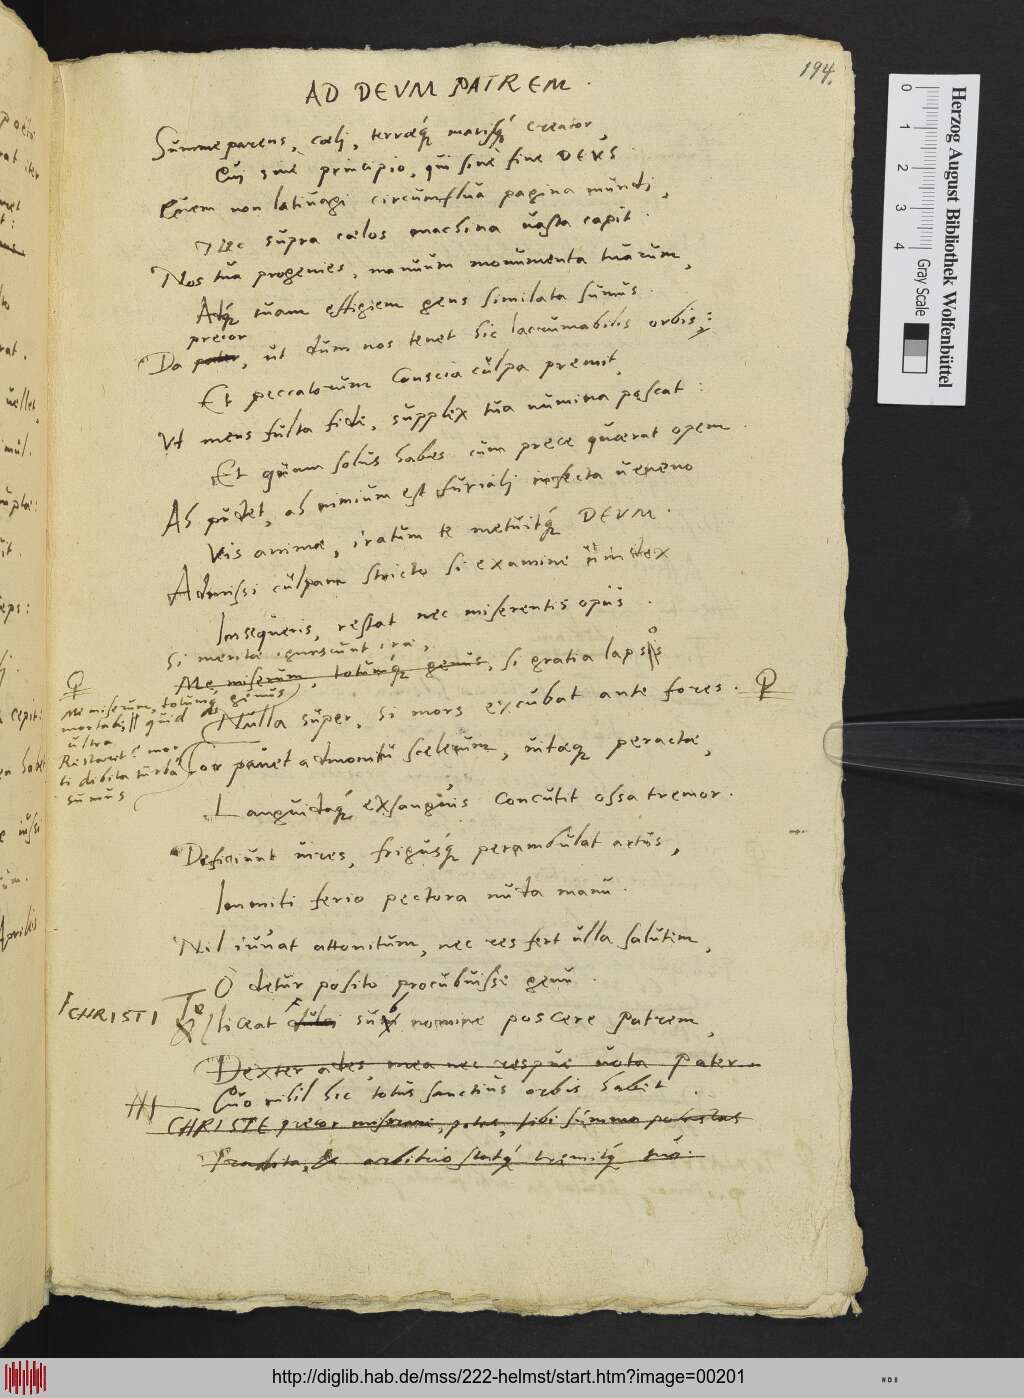 194.
AD DEVM PATREM.
Summe parens, cœli, terræq́ marisq́ creator,
Cui sine principio, qui sine fine DEVS.
Quem non lativagi circumflua pagina mundi,
Nec supra cælos machina uasta capit.
Nos tua progenies, manuum monumenta tuarum,
Atq́ tuam effigiem gens similata sumus.
precor
Da pater, ut dum nos tenet hic lacrumabilis orbis;
Et peccatorum conscia culpa premit,
Vt mens fulta fide, supplex tua numina poscat:
Et quam solus habes cum prece quærat opem.
Ah pudet, ah nimium est furiali infecta ueneno
Vis animæ, iratum te metuitq́ DEVM.
Admissi culpam stricto si examine uindex
Insequeris, restat nec miserentis opus.
Si meritæ ignoscunt iræ,
Me miserum, totumq́ genus, si gratia lapsis
Me miserum, totumq́ genus
mortalis quid
ultra
Restaret? mor
ti debita turba
sumus
Nulla super, si mors excubat ante fores.
Cor pauet admonitu scelerum, uitæq peractæ,
Languidaq́ exsanguis concutit ossa tremor.
Deficiunt uires, frigusq́ perambulat artus,
Immiti ferio pectora nuda manu.
Nil iuuat attonitum, nec res fert ulla salutem,
O detur posito procubuisse genu.
CHRISTI
Te liceat dulci sub nomine poscere Patrem,
Dexter ades, mea nec respue uota Pater.
Quo nihil hic totus sanctius orbis habet.
CHRISTE precor miserere, potes, tibi summa potestas
Tradita, & arbitrio statq́ tremitq́ tuo.
Herzog August Bibliothek Wolfenbüttel
0 1 2 3 4
Gray Scale
http://diglib.hab.de/mss/222-helmst/start.htm?image=00201